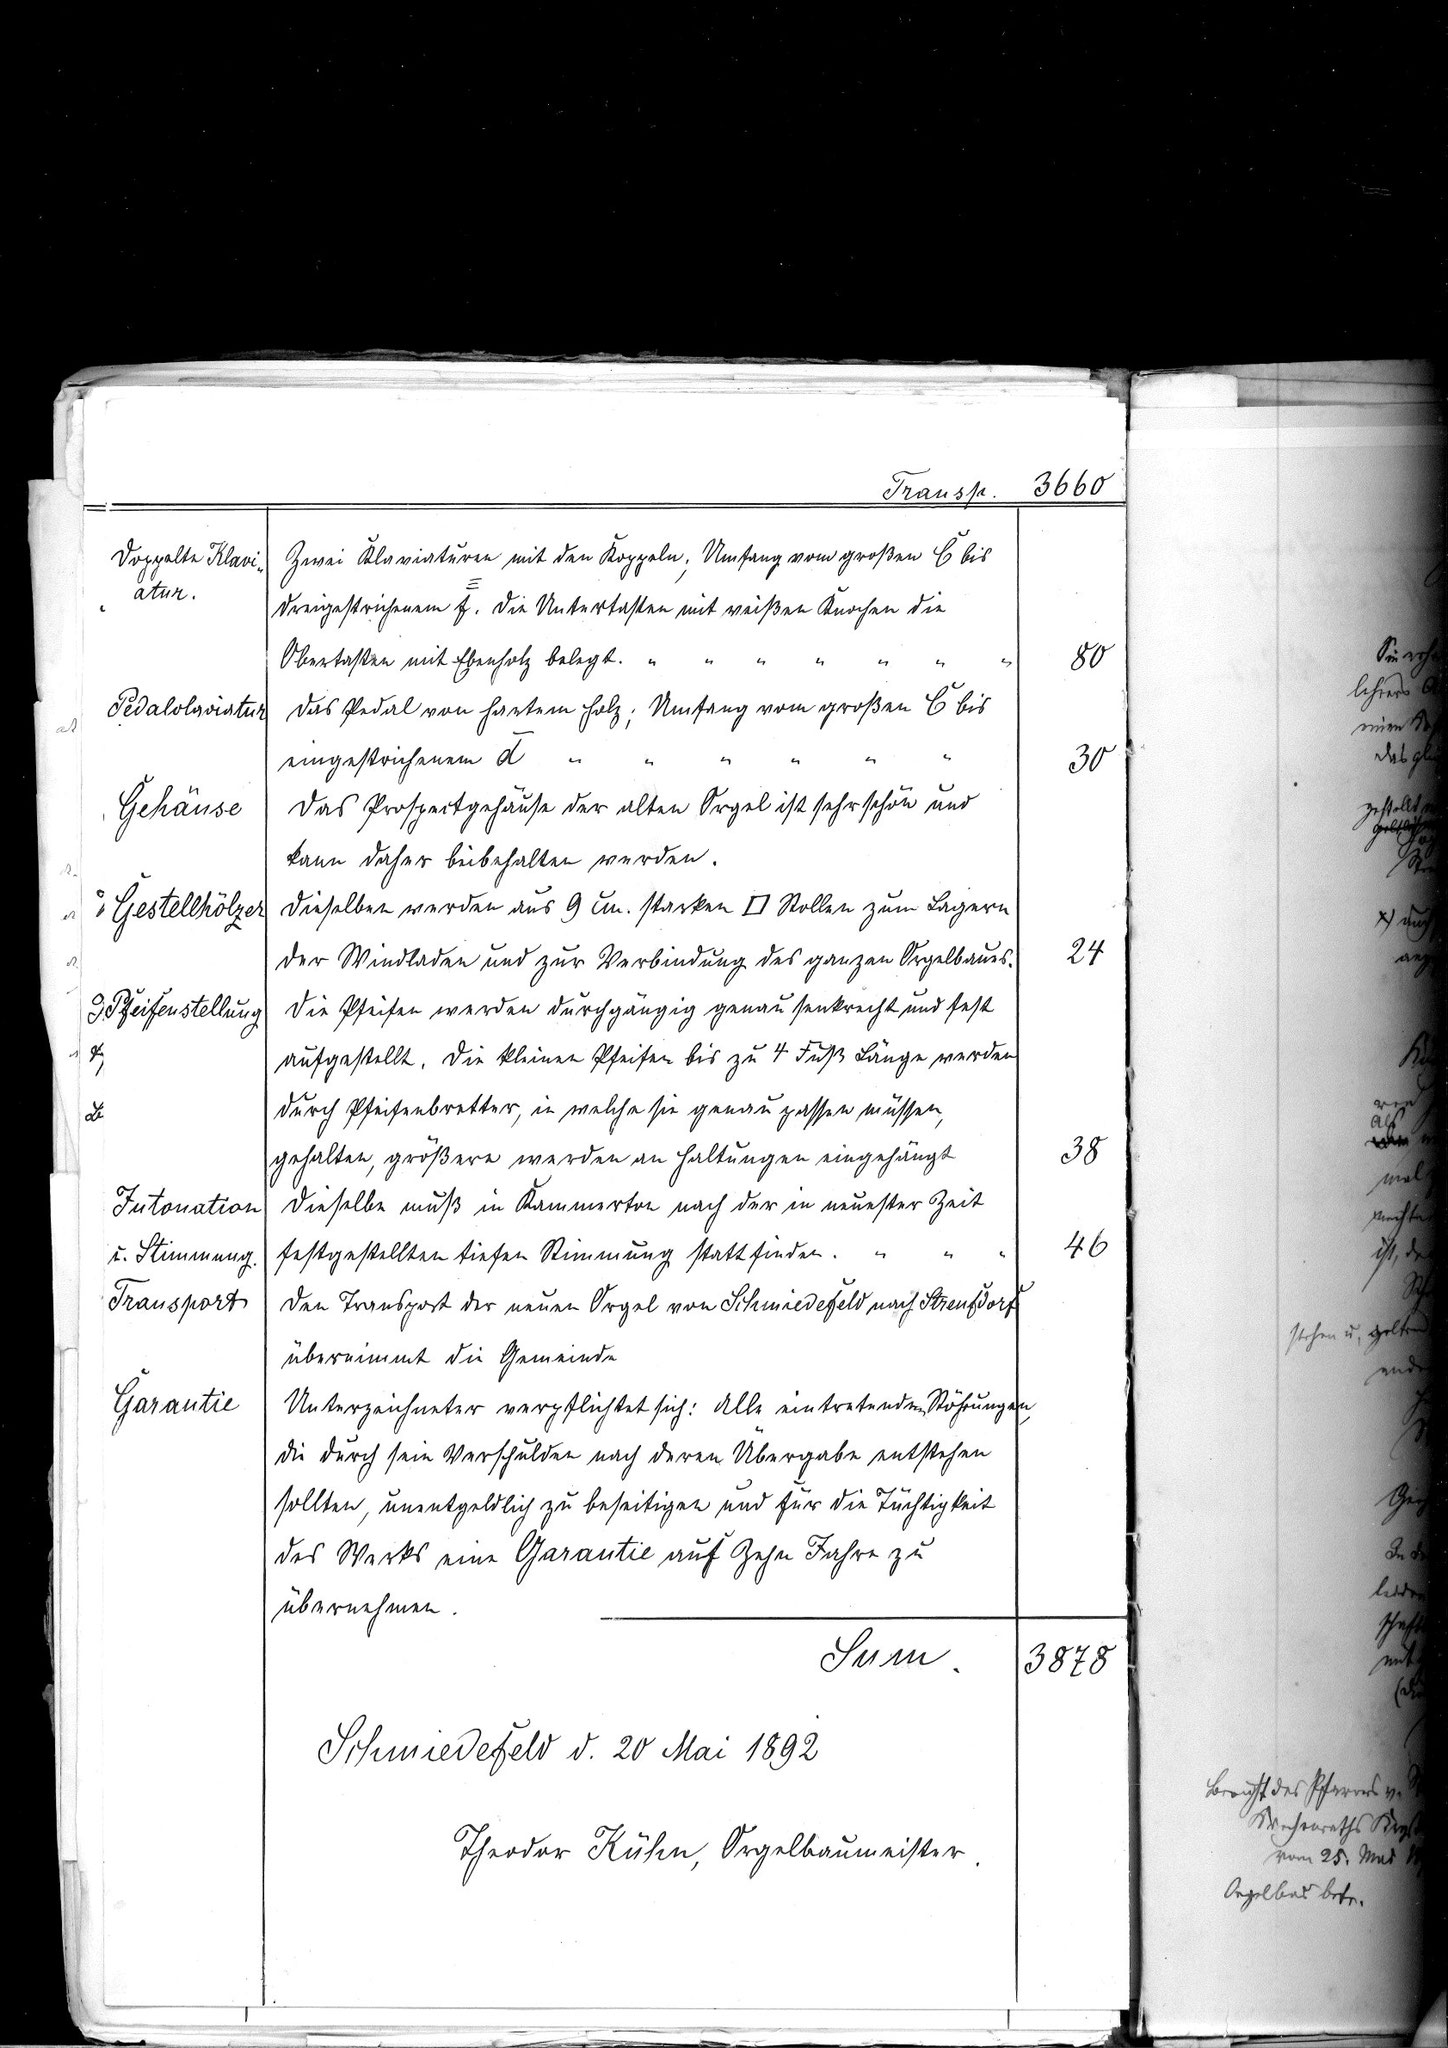 Transp. 3660
Doppelte Klavi- Zwei Klaviaturen mit den Koppeln; Umfang vom großen C bis
atur. dreigestrichenem f. Die Untertasten mit weißen Knochen die
Obertasten mit Ebenholz belegt. " " " " " " " 80
Pedalclaviatur Das Pedal von hartem Holz; Umfang vom großen C bis
eingestrichenem d " " " " " " 30
Gehäuse Das Prospectgehäuse der alten Orgel ist sehr schön und
kann daher beibehalten werden.
Gestellhölzer Dieselben werden aus 9 cm. starken □ Stollen zum Lagern
der Windladen und zur Verbindung des ganzen Orgelbaues. 24
Pfeifenstellung Die Pfeifen werden durchgängig genau senkrecht und fest
aufgestellt. Die kleinen Pfeifen bis zu 4 Fuß Länge werden
durch Pfeifenbretter, in welche sie genau passen müssen,
gehalten, größere werden an Haltungen eingehängt 38
Intonation Dieselbe muß in Kammerton nach der in neuester Zeit
u. Stimmung. festgestellten tiefen Stimmung stattfinden. " " " 46
Transport Den Transport der neuen Orgel von Schmiedefeld nach Streufdorf
übernimmt die Gemeinde
Garantie Unterzeichneter verpflichtet sich: Alle eintretenden Stöhrungen,
die durch sein Verschulden nach deren Übergabe entstehen
sollten, unentgeldlich zu beseitigen und für die Tüchtigkeit
des Werks eine Garantie auf Zehn Jahre zu
übernehmen.
Sum. 3878
Schmiedefeld d. 20 Mai 1892
Theodor Kühn, Orgelbaumeister.
Bericht des Pfarrers
vom 25. Mai
Orgelbau betr.